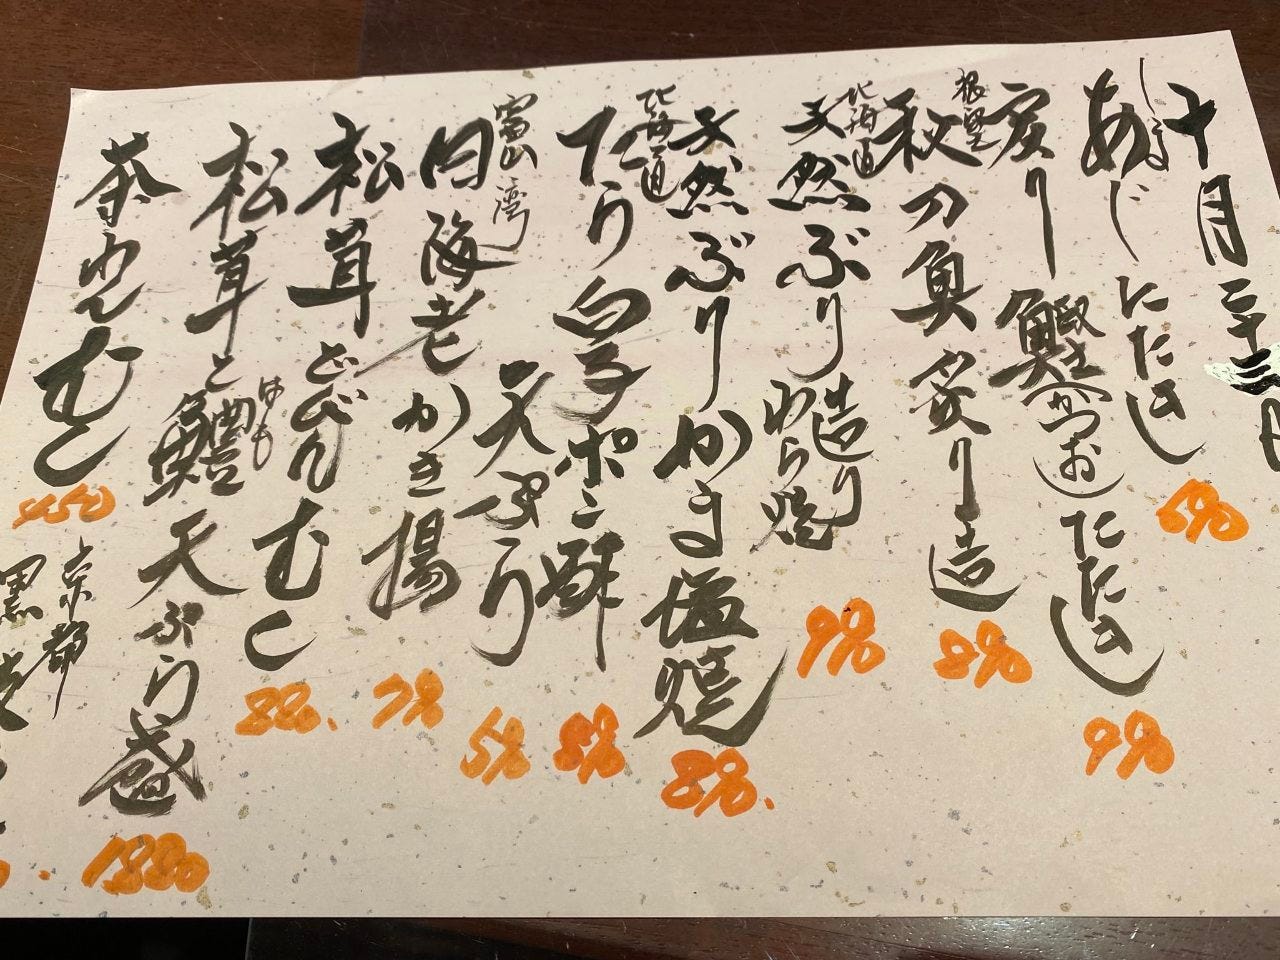 十月二十三日
あじにたたき 590
炙り鰹かつおたたき 990
根室
秋刀魚炙り造 890
北海道
天然ぶり造り
わら焼 990
北海道
天然ぶりかま塩焼 890.
たら白子ポン酢 890
天ぷら 590
富山湾
白海老かき揚 790
松茸どびんむし 880.
松茸と鱧はも天ぷら盛 1380
茶わんむし 450
京都
黒